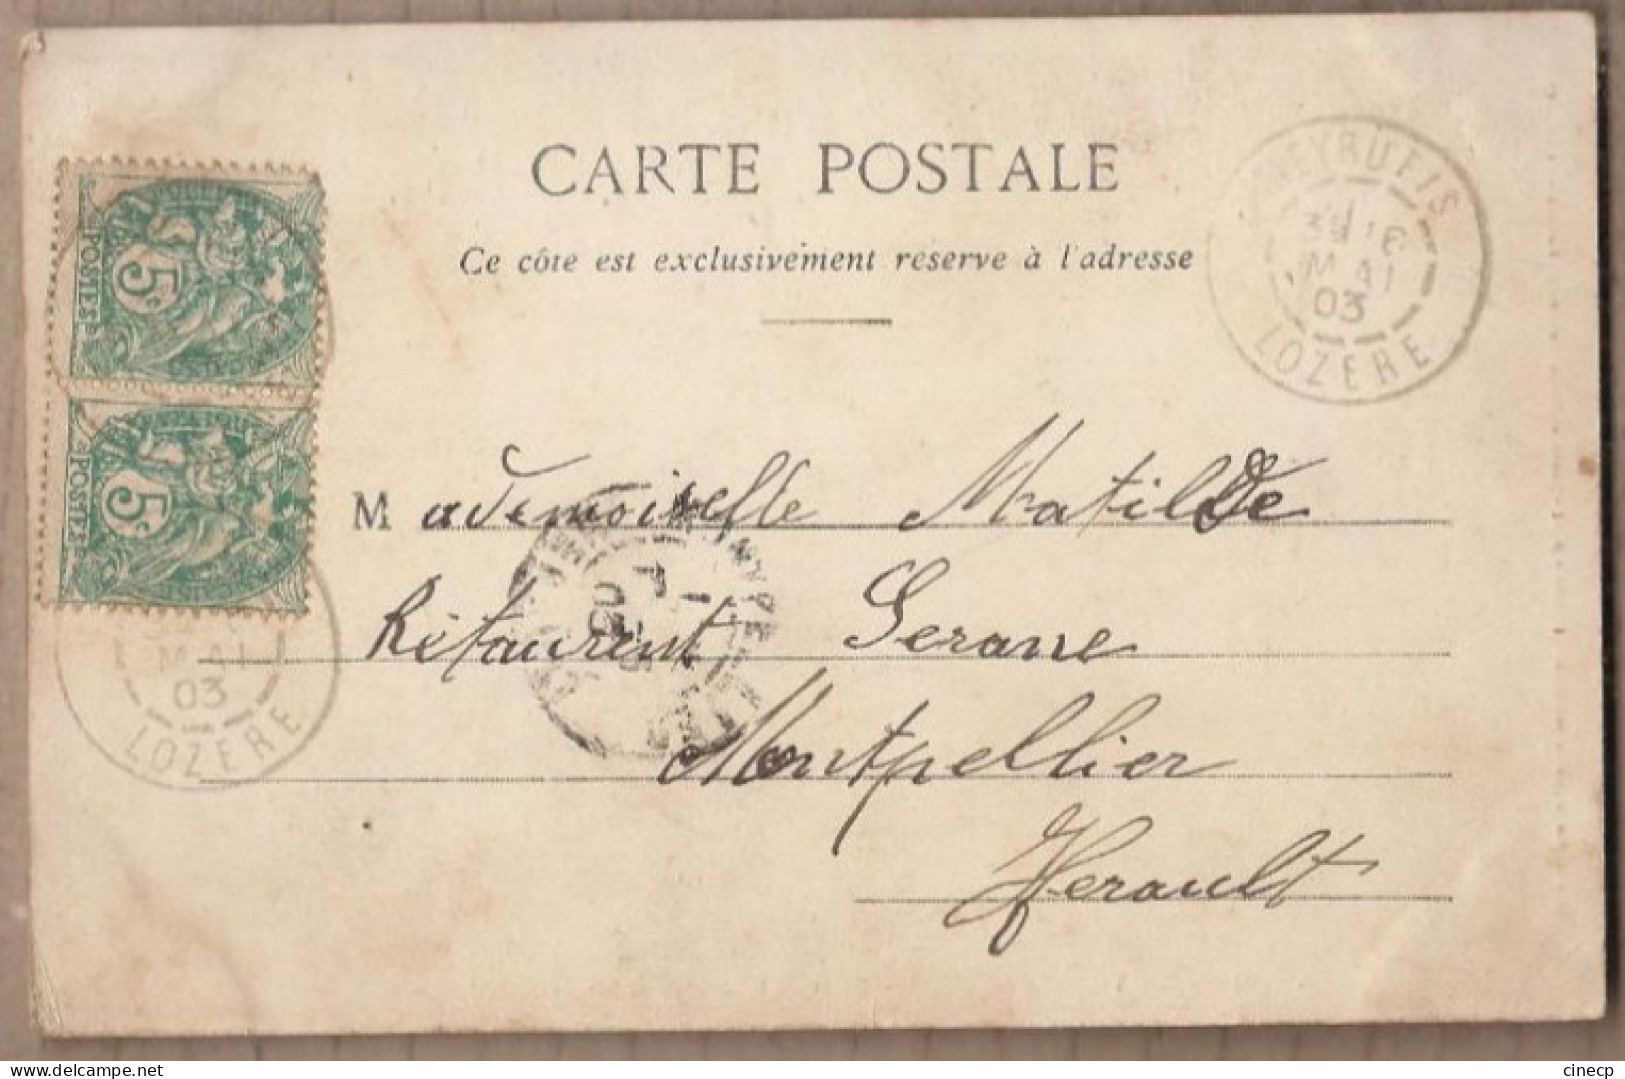 CARTE POSTALE
Ce côte est exclusivement reserve à l'adresse
MEYRUEIS
MAI
03
LOZERE
5c
POSTES
5c
POSTES
MAI
03
LOZERE
Mademoiselle Matilde
Rétaurent Serane
Montpellier
Herault
cinecp